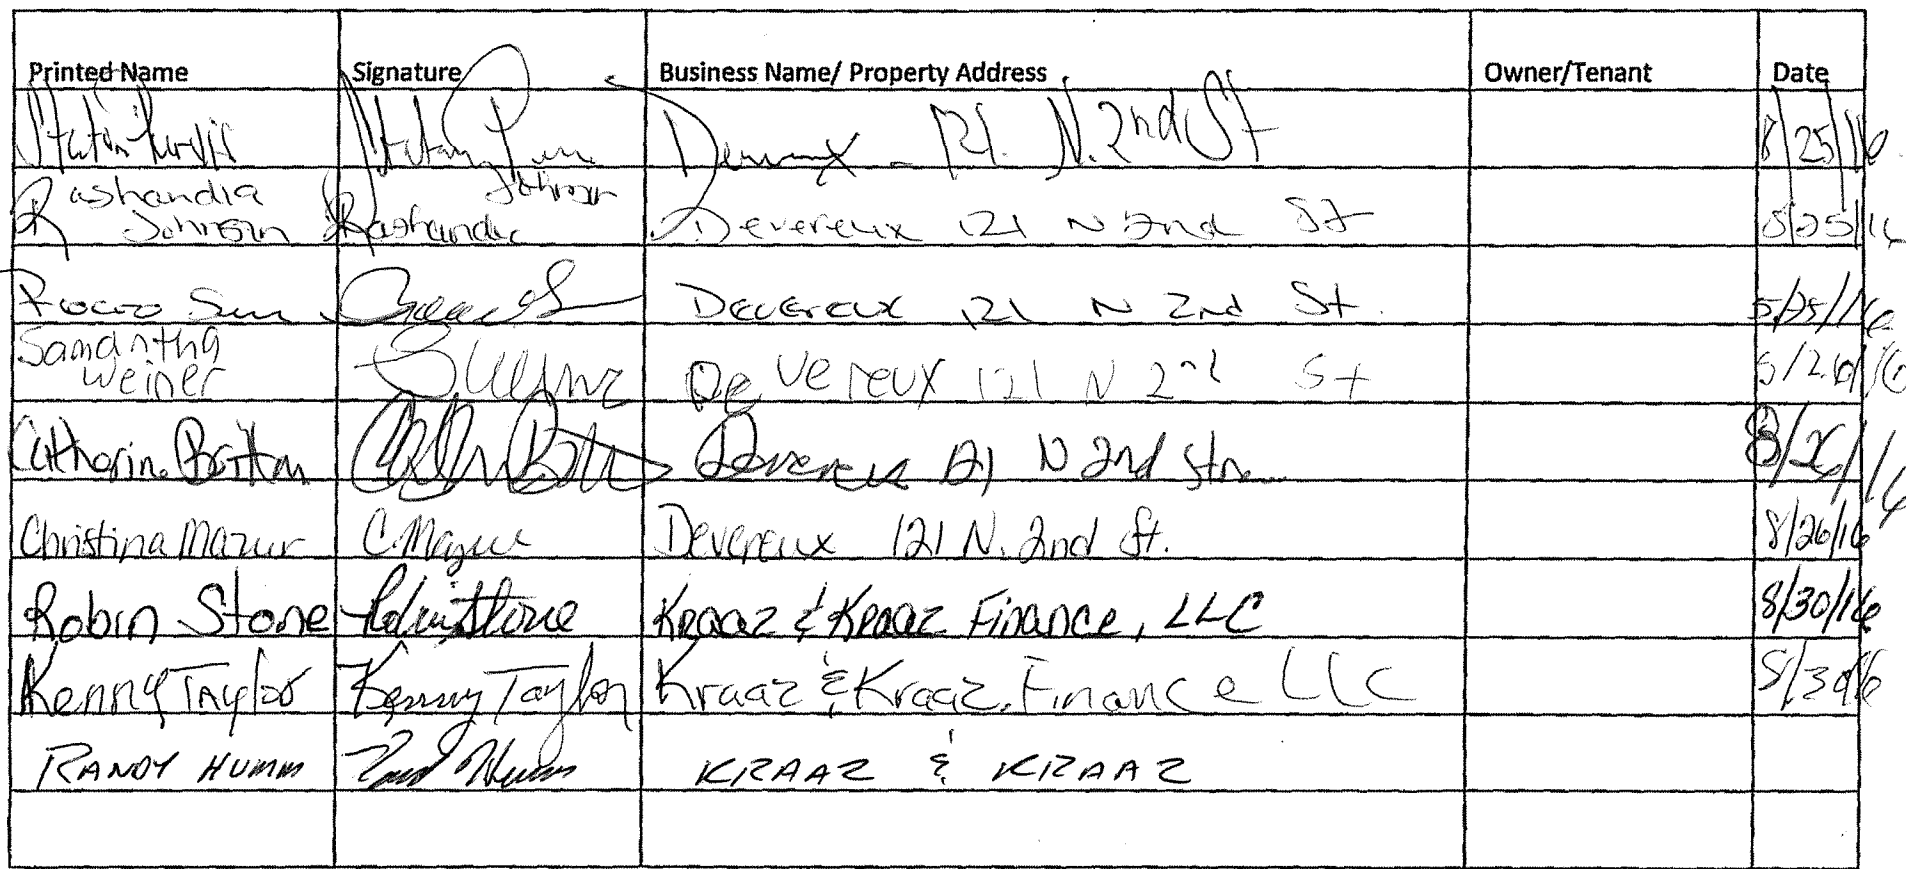 Printed Name Signature Business Name/ Property Address Owner/Tenant Date
121 N. 2nd St 8/25/16
Rashandia Johnson Rashandia Johnson Devereux 121 N 2nd St 8/25/16
Devereux 121 N 2nd St.
Samantha Weiner Devereux 121 N 2nd St
Catherine Britton Devereux 121 N 2nd 8/26/16
Christina Mazur C. Mazur Devereux 121 N. 2nd St. 8/26/16
Robin Stone Robin Stone Kraaz & Kraaz Finance, LLC 8/30/16
Kenny Taylor Kenny Taylor Kraaz & Kraaz Finance LLC
RANDY HUMM KRAAZ & KRAAZ